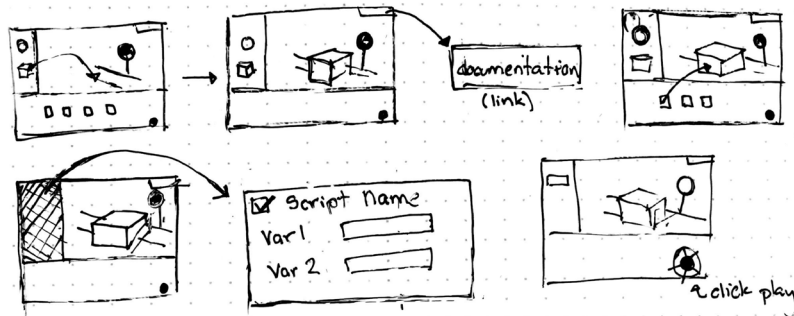 documentation
(link)
Script Name
Var 1
Var 2
click play